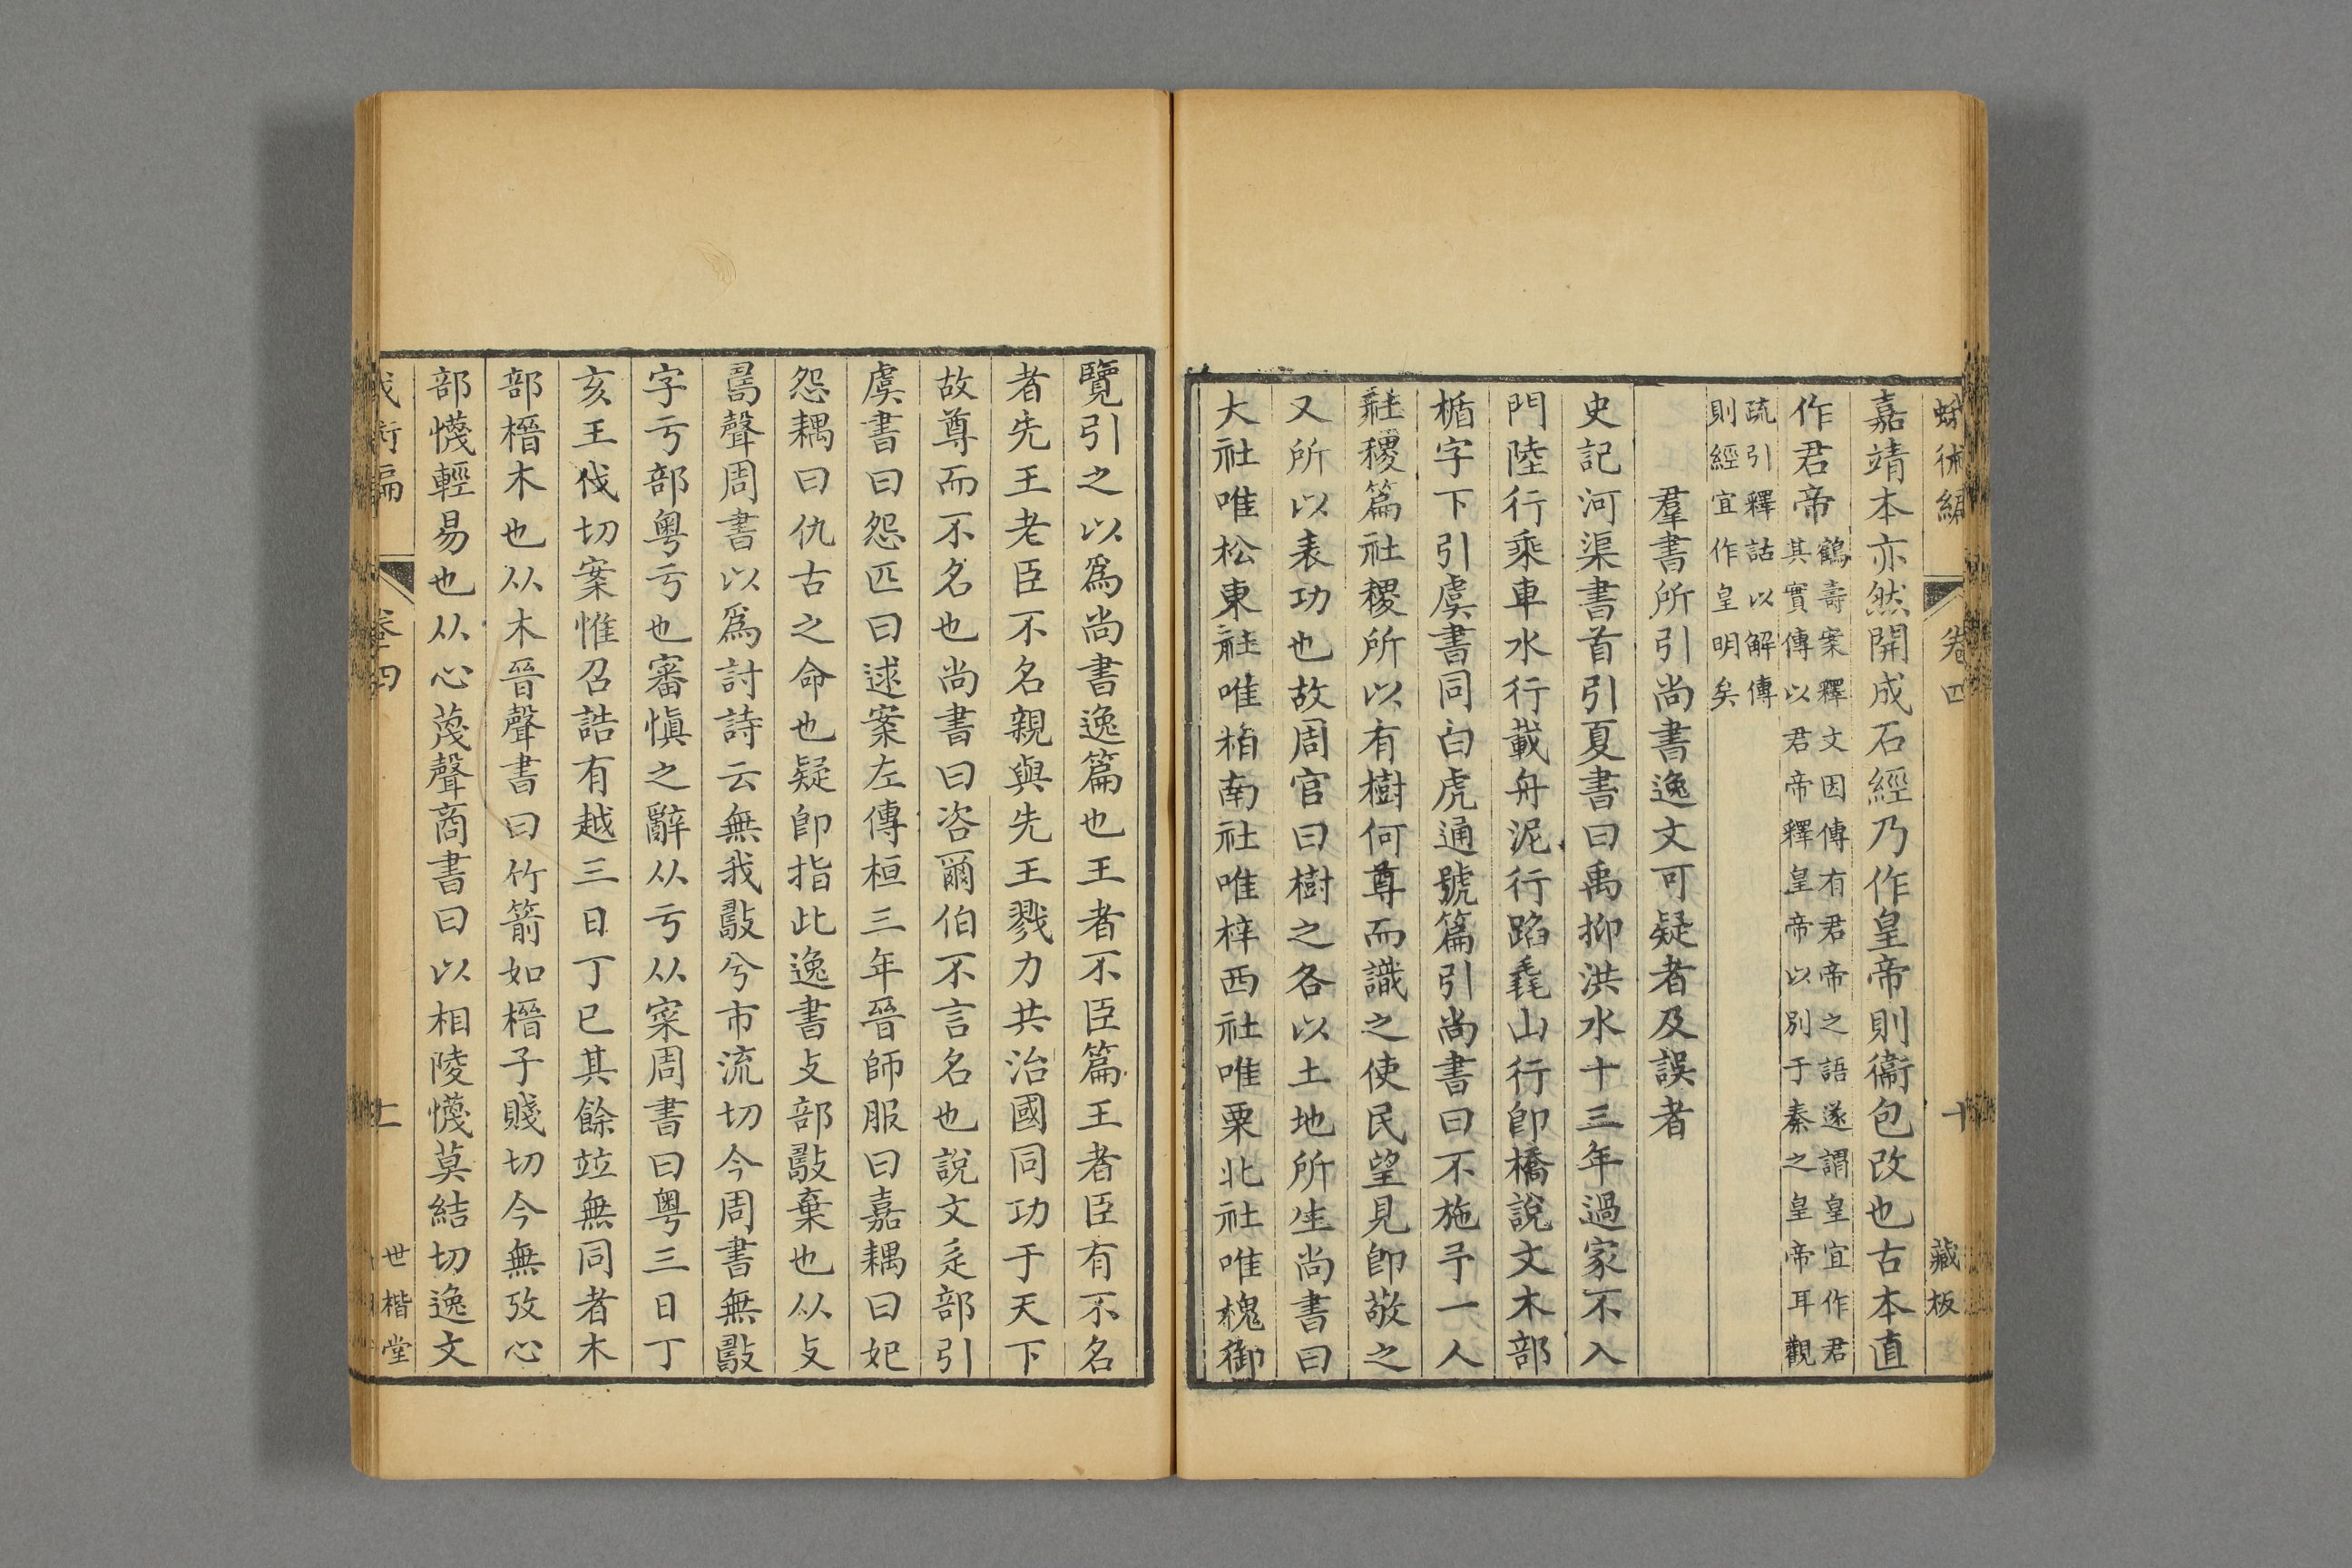 蛾術編 卷四 十 藏板
嘉靖本亦然開成石經乃作皇帝則衞包改也古本直
作君帝鶴壽案釋文因傳有君帝之語遂謂皇宜作君
其實傳以君帝釋皇帝以別于秦之皇帝耳觀
疏引釋詁以解傳
則經宜作皇明矣
羣書所引尚書逸文可疑者及誤者
史記河渠書首引夏書曰禹抑洪水十三年過家不入
門陸行乘車水行載舟泥行蹈毳山行卽橋說文木部
楯字下引虞書同白虎通號篇引尚書曰不施予一人
社稷篇社稷所以有樹何尊而識之使民望見卽敬之
又所以表功也故周官曰樹之各以土地所生尚書曰
大社唯松東社唯栢南社唯梓西社唯栗北社唯槐御
覽引之以爲尚書逸篇也王者不臣篇王者臣有不名
者先王老臣不名親與先王戮力共治國同功于天下
故尊而不名也尚書曰咨爾伯不言名也說文辵部引
虞書曰怨匹曰逑案左傳桓三年晉師服曰嘉耦曰妃
怨耦曰仇古之命也疑卽指此逸書攴部敼棄也从攴
𠷎聲周書以爲討詩云無我敼兮市流切今周書無敼
字亏部粤亏也審愼之辭从亏从寀周書曰粤三日丁
亥王伐切案惟召誥有越三日丁巳其餘竝無同者木
部榗木也从木晉聲書曰竹箭如榗子賤切今無攷心
部懱輕易也从心蔑聲商書曰以相陵懱莫結切逸文
卷四 世楷堂